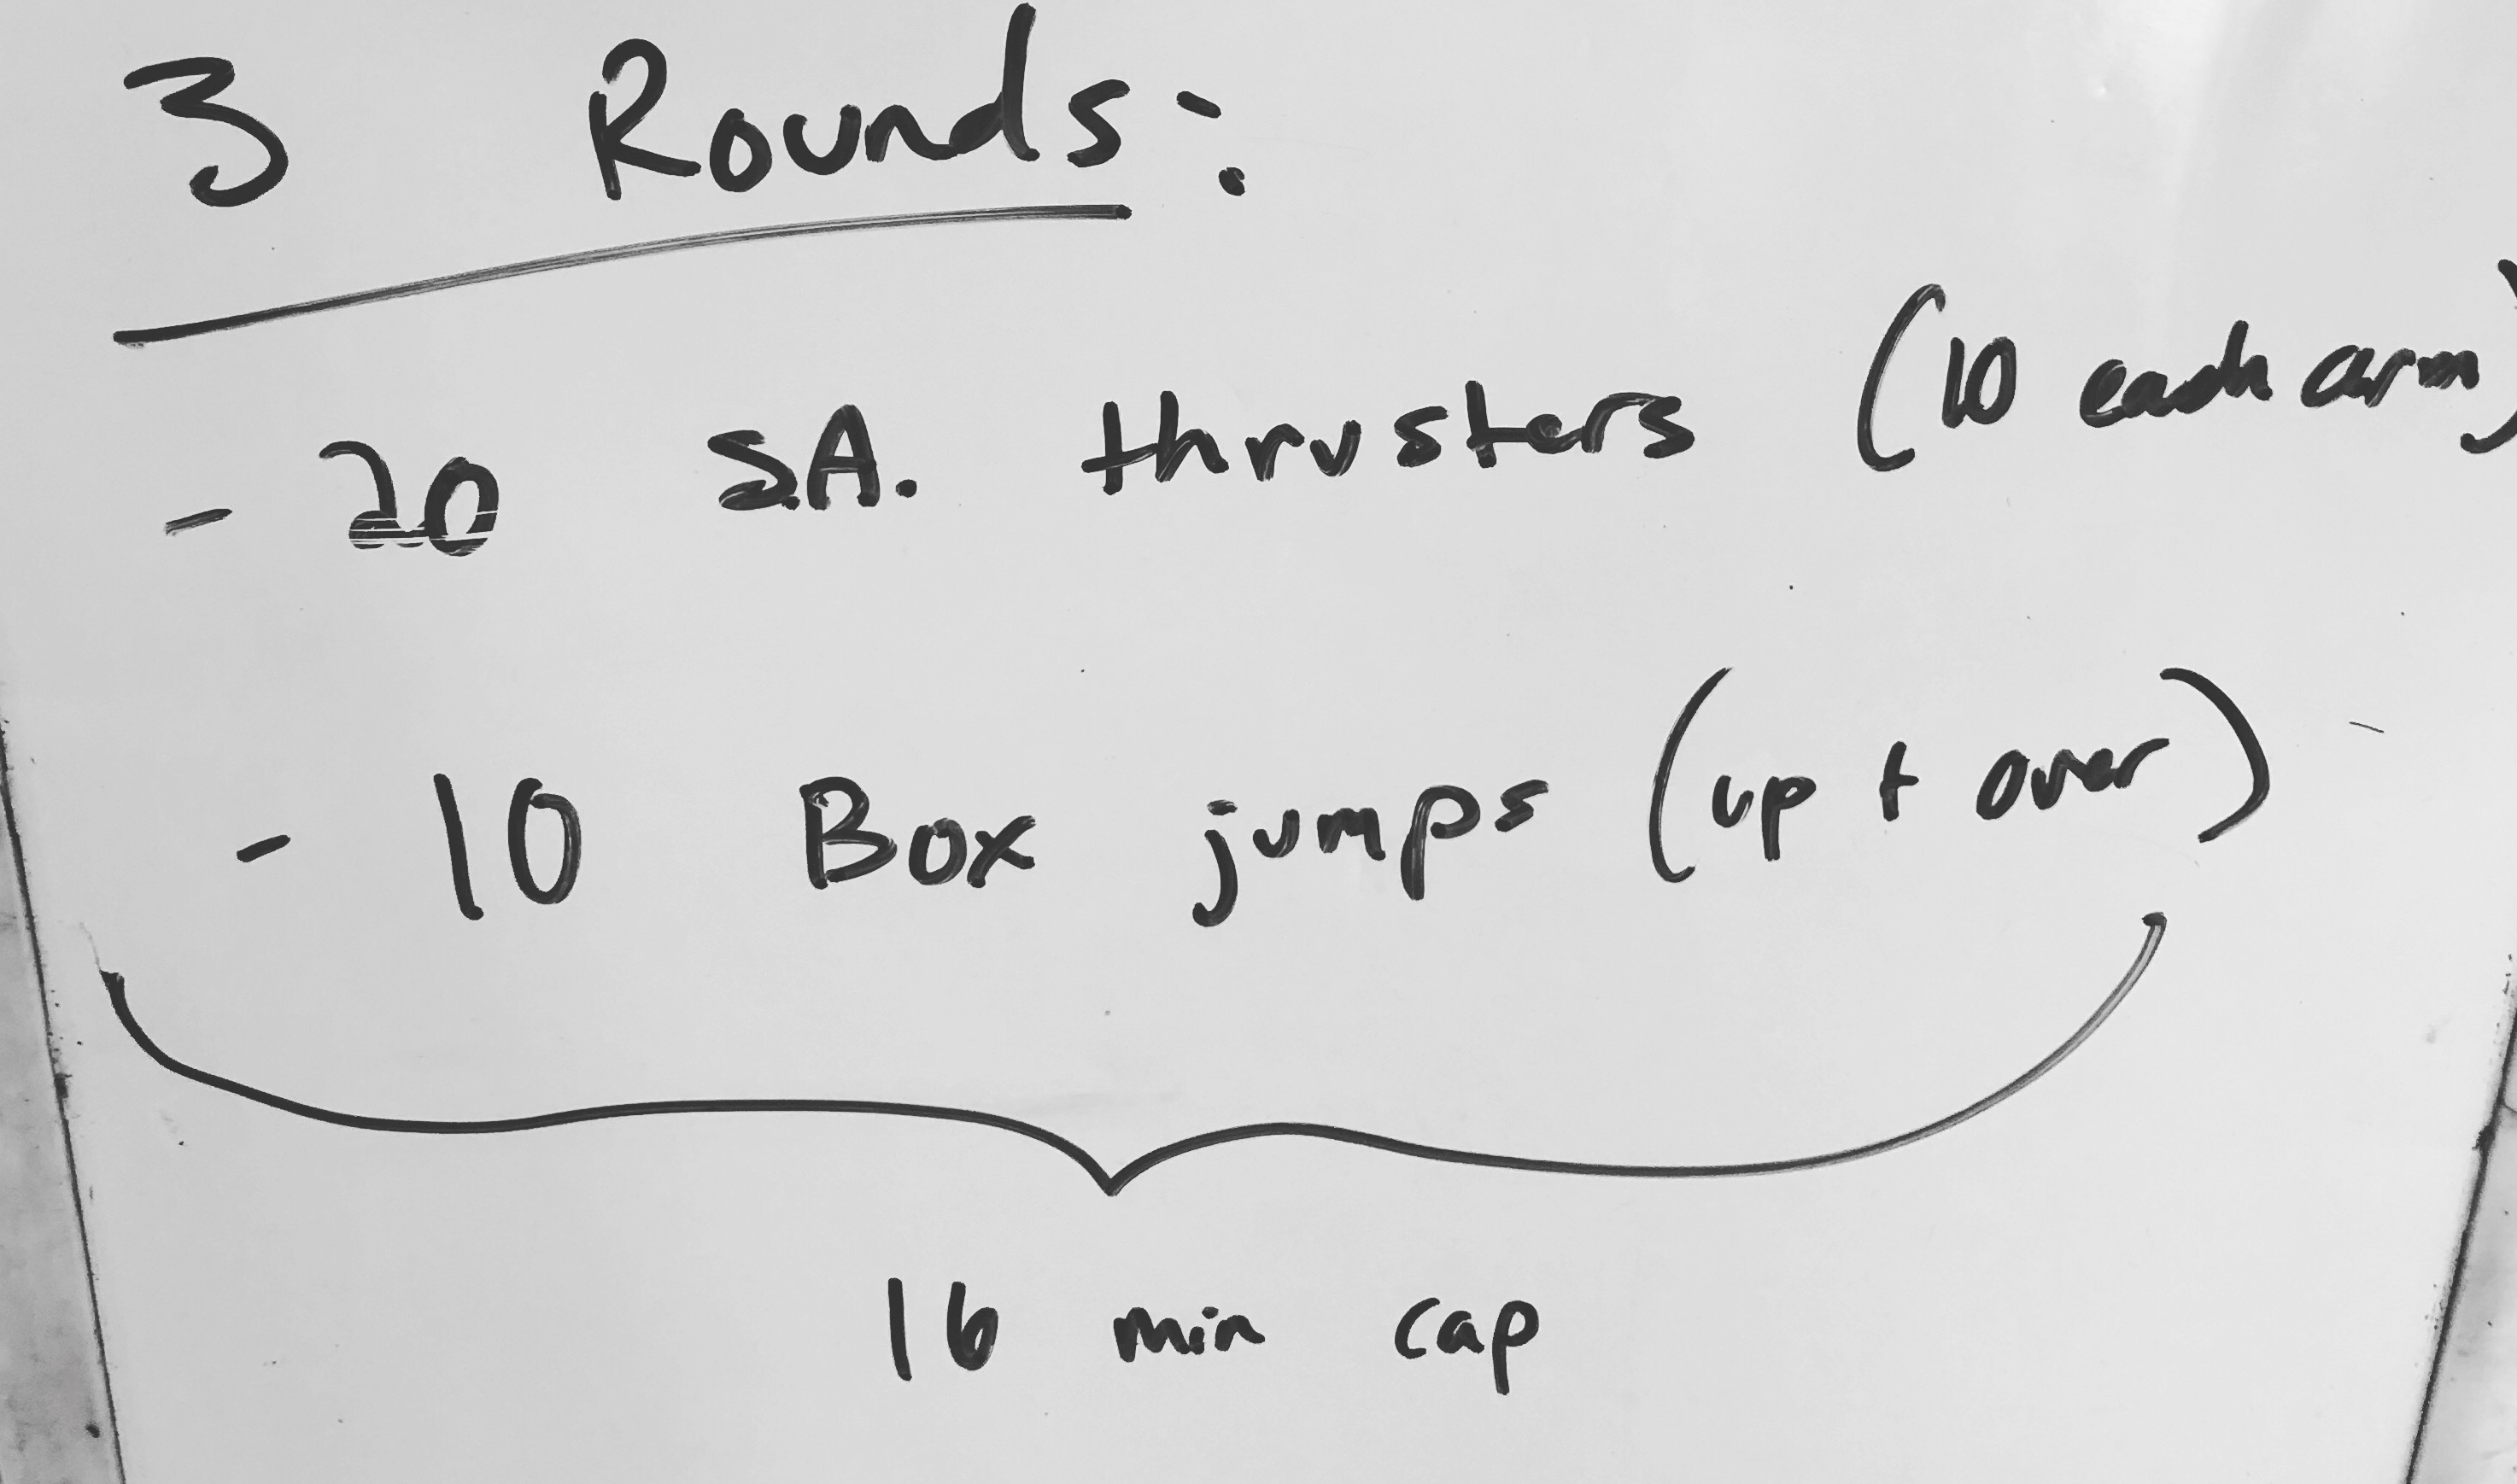 3 Rounds:
- 20 S.A. thrusters (10 each arm)
- 10 Box jumps (up + over)
16 min cap